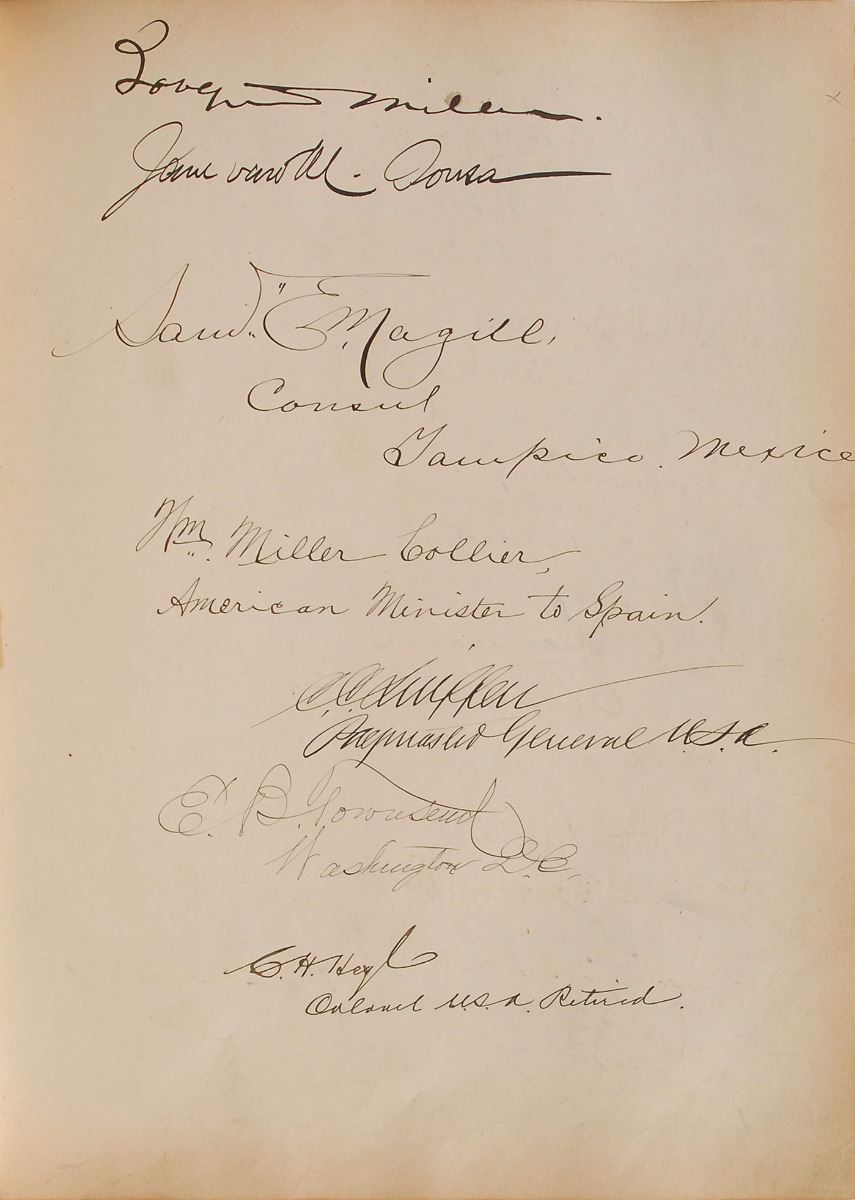 Miller.
Jane van M. Sousa
Saml. E. Magill,
Consul
Tampico. Mexico
Wm. Miller Collier,
American Minister to Spain.
C. C. Sniffen
Paymaster General U.S.A.
E. B. Townsend
Washington D.C.
C. H. Heyl
Colonel U.S.A. Retired.